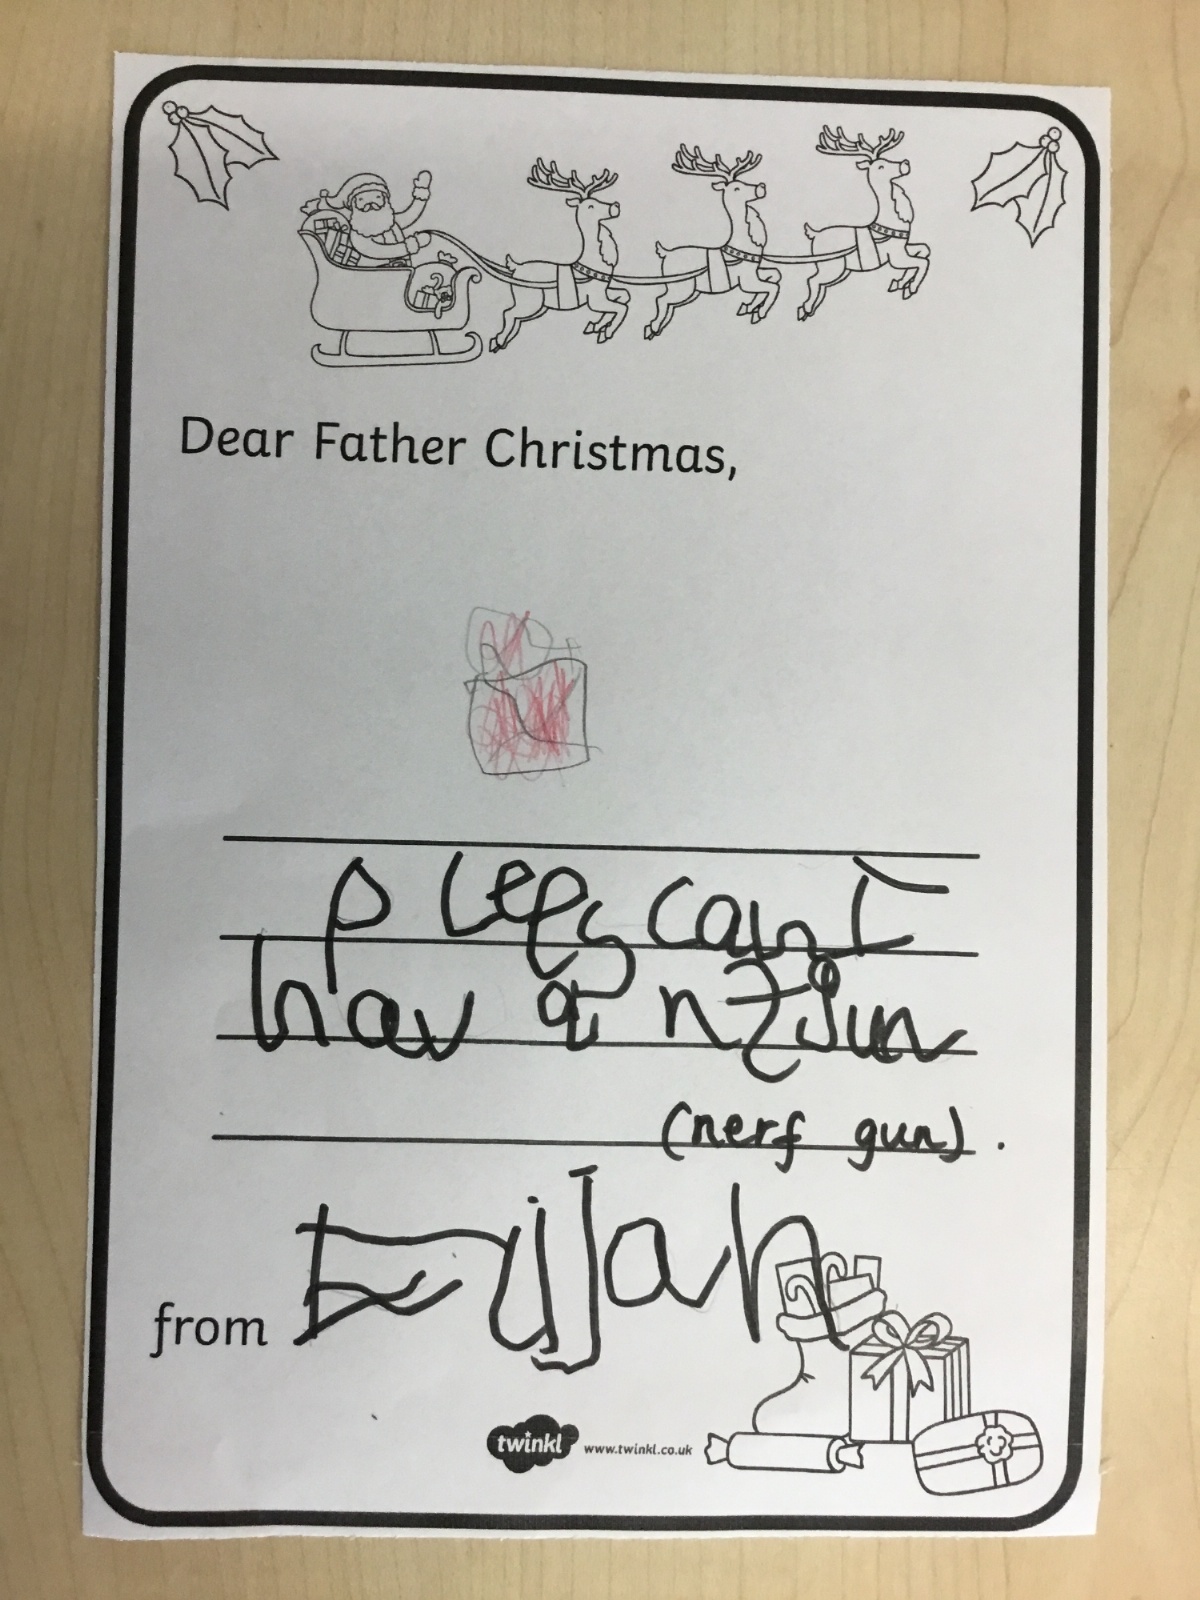 Dear Father Christmas,
plees can I
hav a nfgun
(nerf gun).
from Elijah
twinkl www.twinkl.co.uk